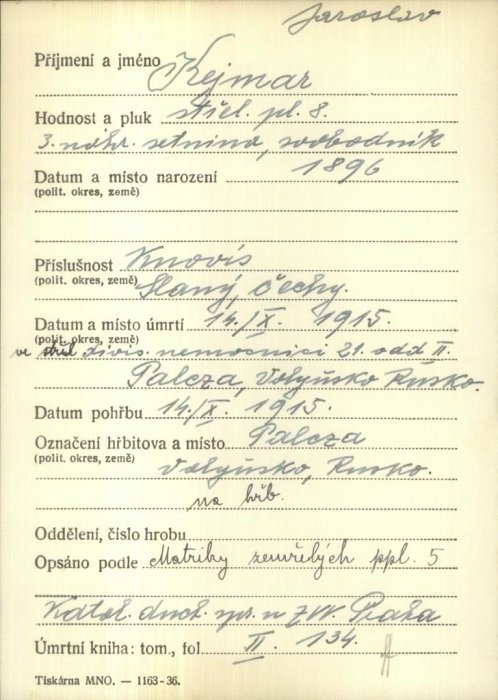 Jaroslav
Příjmení a jméno Kejmar
Hodnost a pluk střel. pl. 8.
3. náhr. setnina, svobodník
Datum a místo narození 1896
(polit. okres, země)
Příslušnost Knovís
(polit. okres, země) Slaný, Čechy.
Datum a místo úmrtí 14./X. 1915.
(polit. okres, země)
ve střel divis. nemocnici 21. odd II.
Palcza, Volyňsko Rusko.
Datum pohřbu 14./X. 1915.
Označení hřbitova a místo Palcza
(polit. okres, země) Volyňsko, Rusko.
na hřb.
Oddělení, číslo hrobu
Opsáno podle Matriky zemřelých ppl. 5
Katol. duch. spr. u ZVV. Praha
Úmrtní kniha: tom., fol. II. 134.
Tiskárna MNO. — 1163-36.